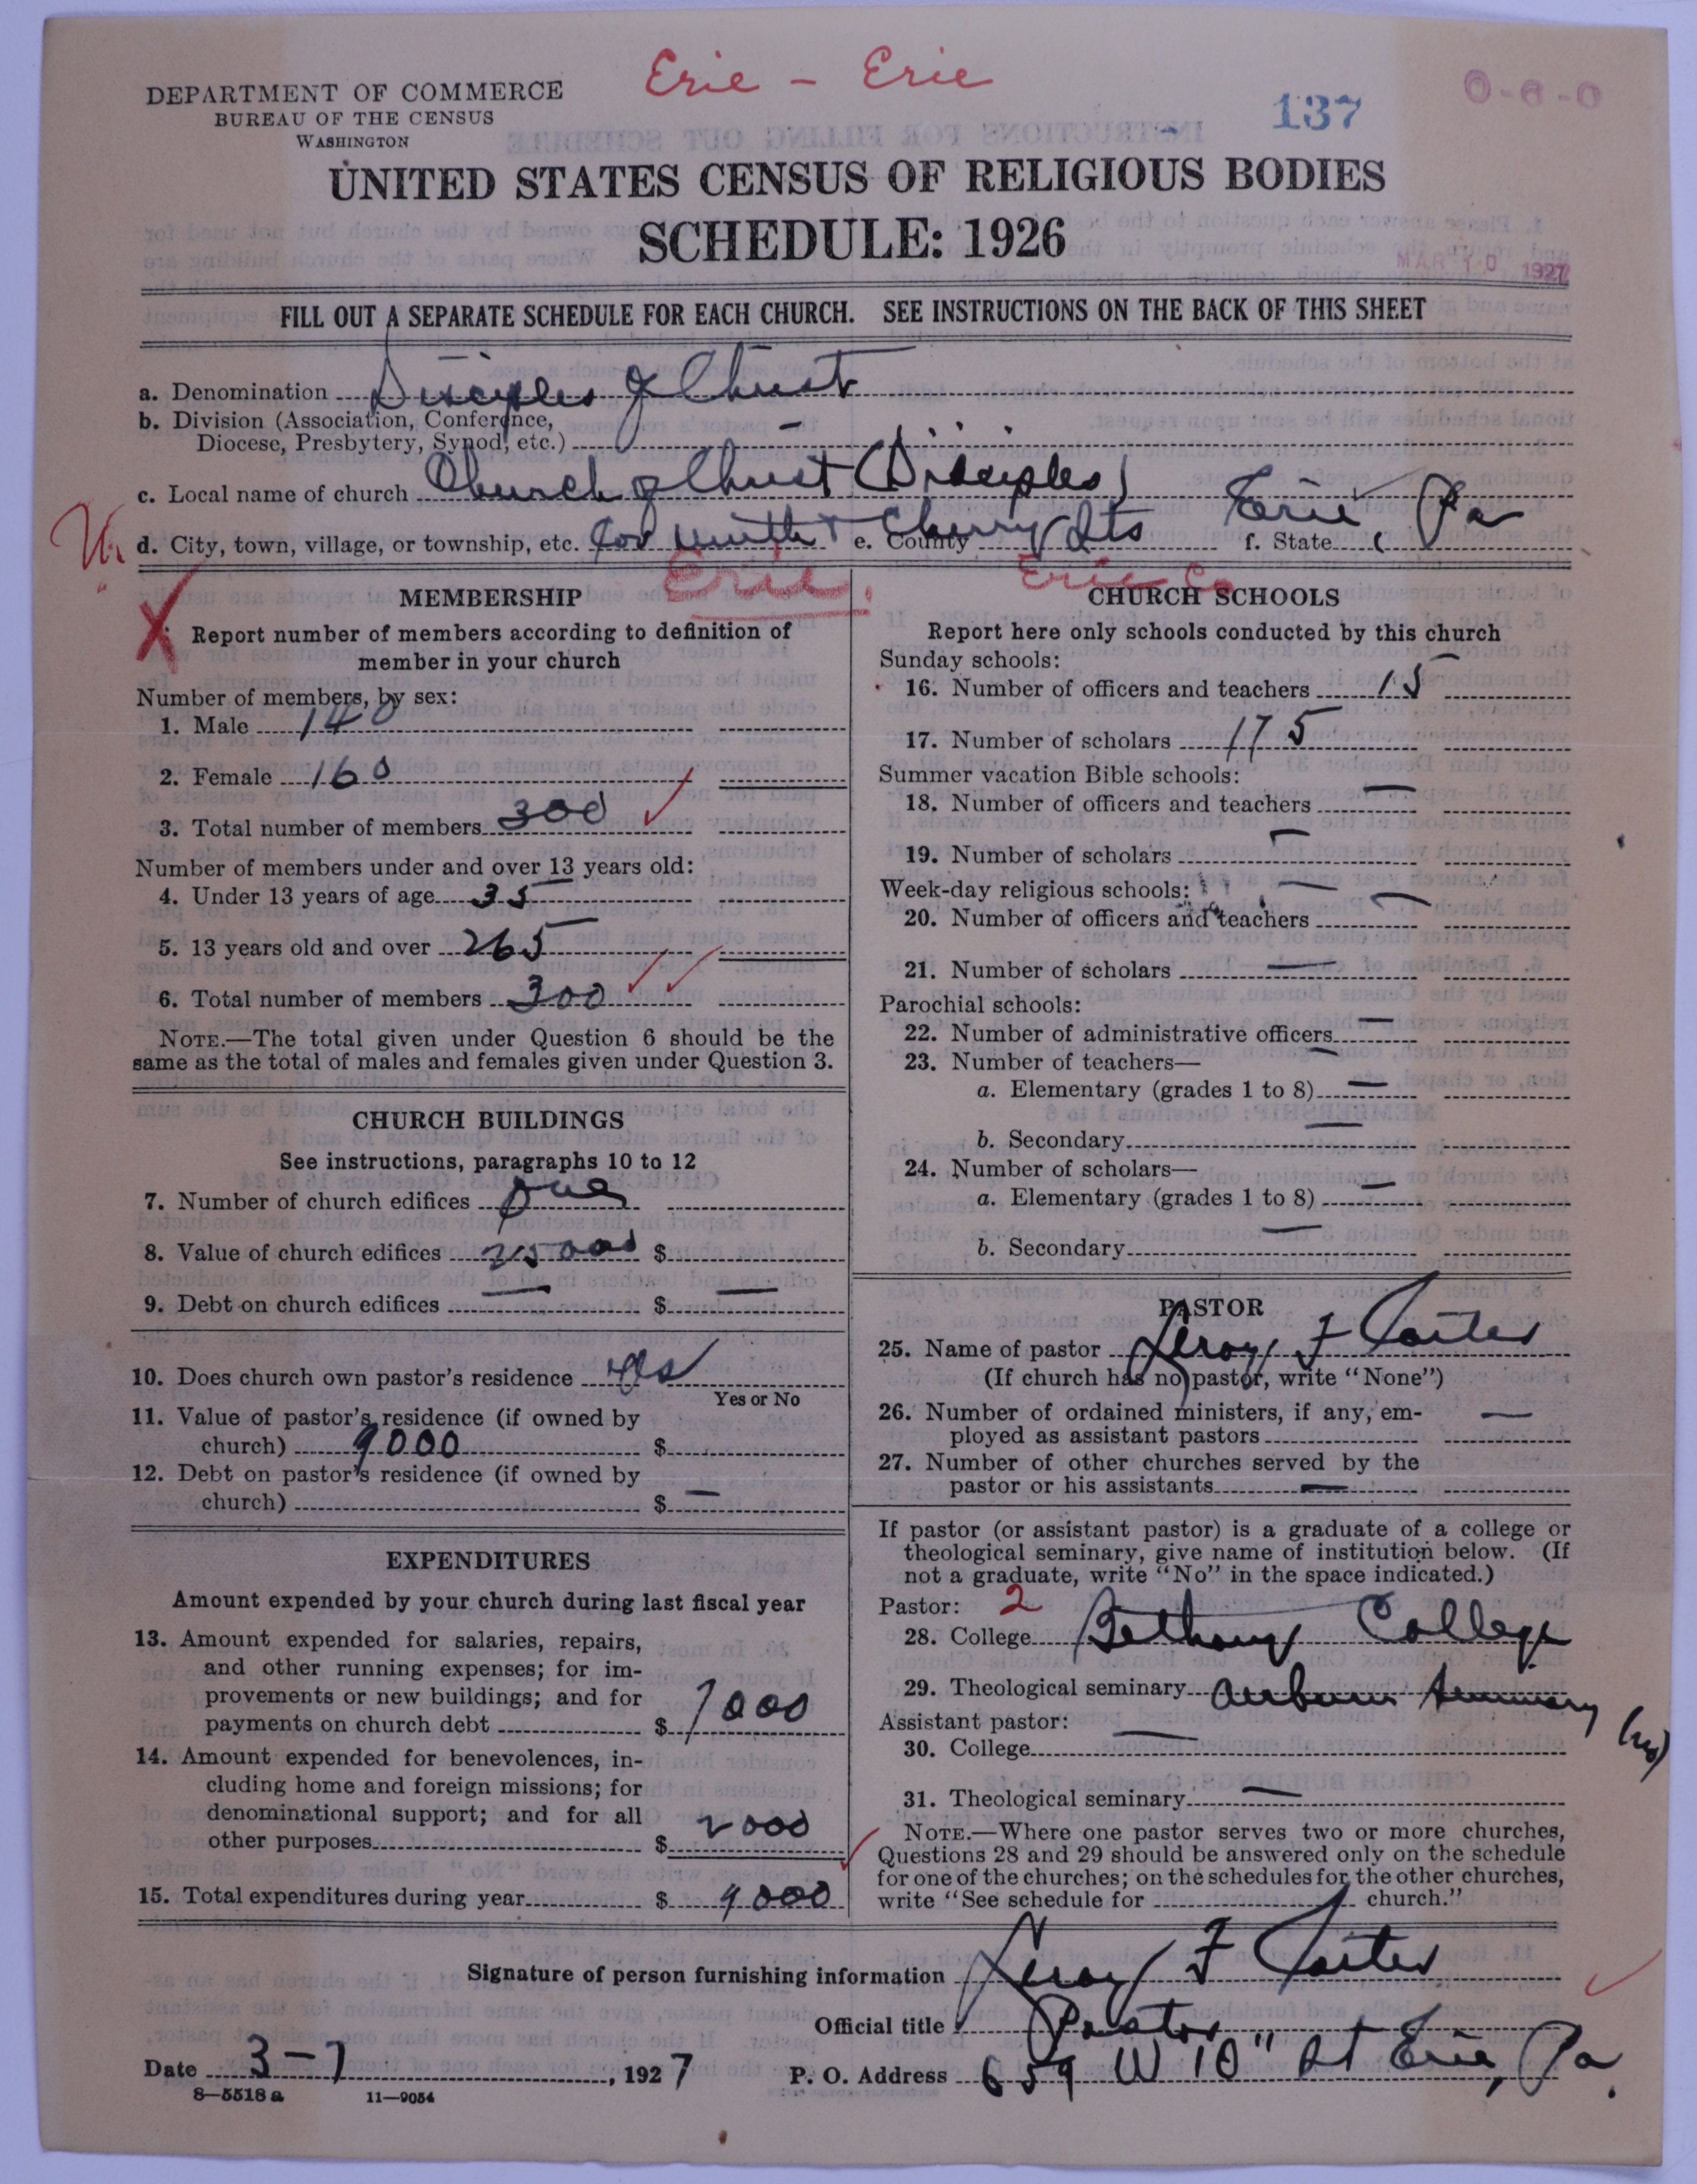 Erie - Erie
DEPARTMENT OF COMMERCE
BUREAU OF THE CENSUS
WASHINGTON
137
0-6-0
UNITED STATES CENSUS OF RELIGIOUS BODIES
SCHEDULE: 1926
MAR 10 1927
FILL OUT A SEPARATE SCHEDULE FOR EACH CHURCH. SEE INSTRUCTIONS ON THE BACK OF THIS SHEET
a. Denomination Disciples of Christ
b. Division (Association, Conference,
Diocese, Presbytery, Synod, etc.) —
c. Local name of church Church of Christ (Disciples)
d. City, town, village, or township, etc. Cor Ninth + Cherry Sts e. County f. State Erie, Pa
Erie. Erie Co
MEMBERSHIP
X Report number of members according to definition of
member in your church
Number of members, by sex:
1. Male 140
2. Female 160
3. Total number of members 300
Number of members under and over 13 years old:
4. Under 13 years of age 35
5. 13 years old and over 265
6. Total number of members 300
NOTE.—The total given under Question 6 should be the
same as the total of males and females given under Question 3.
CHURCH BUILDINGS
See instructions, paragraphs 10 to 12
7. Number of church edifices one
8. Value of church edifices 25000 $
9. Debt on church edifices — $ —
10. Does church own pastor's residence yes
Yes or No
11. Value of pastor's residence (if owned by
church) 9000 $
12. Debt on pastor's residence (if owned by
church) $ —
EXPENDITURES
Amount expended by your church during last fiscal year
13. Amount expended for salaries, repairs,
and other running expenses; for im-
provements or new buildings; and for
payments on church debt $ 7000
14. Amount expended for benevolences, in-
cluding home and foreign missions; for
denominational support; and for all
other purposes $ 2000
15. Total expenditures during year $ 9000
CHURCH SCHOOLS
Report here only schools conducted by this church
Sunday schools:
16. Number of officers and teachers 15
17. Number of scholars 175
Summer vacation Bible schools:
18. Number of officers and teachers —
19. Number of scholars —
Week-day religious schools: —
20. Number of officers and teachers —
21. Number of scholars —
Parochial schools:
22. Number of administrative officers —
23. Number of teachers— —
a. Elementary (grades 1 to 8) —
b. Secondary —
24. Number of scholars—
a. Elementary (grades 1 to 8) —
b. Secondary —
PASTOR
25. Name of pastor Leroy F
(If church has no pastor, write "None")
26. Number of ordained ministers, if any, em-
ployed as assistant pastors —
27. Number of other churches served by the
pastor or his assistants —
If pastor (or assistant pastor) is a graduate of a college or
theological seminary, give name of institution below. (If
not a graduate, write "No" in the space indicated.)
Pastor: 2
28. College Bethany College
29. Theological seminary Auburn Seminary
Assistant pastor:
30. College —
31. Theological seminary —
NOTE.—Where one pastor serves two or more churches,
Questions 28 and 29 should be answered only on the schedule
for one of the churches; on the schedules for the other churches,
write "See schedule for church."
Signature of person furnishing information Leroy F
Official title Pastor
Date 3-7, 1927 P. O. Address 659 W 10" St Erie, Pa.
8—5518a 11—9054